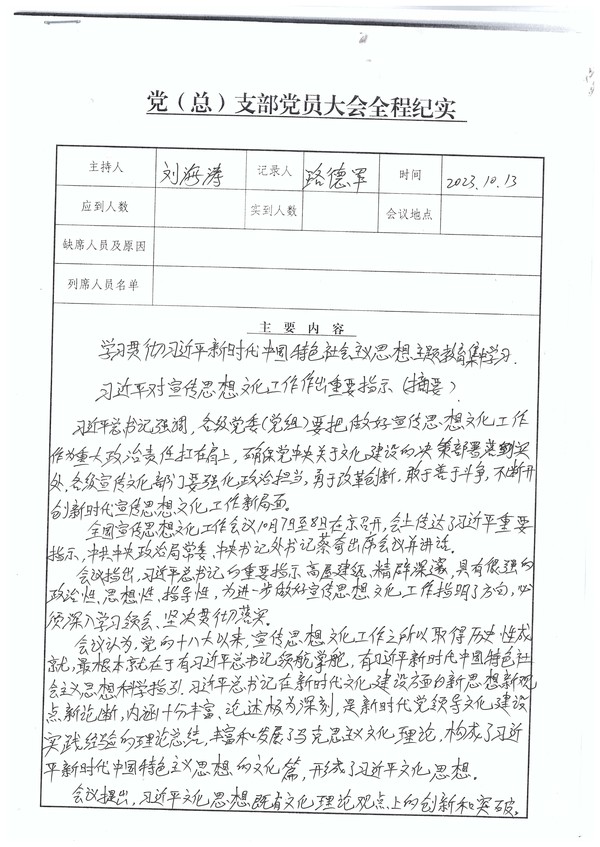 党（总）支部党员大会全程纪实
主持人 刘海涛 记录人 路德军 时间 2023.10.13
应到人数 实到人数 会议地点
缺席人员及原因
列席人员名单
主要内容
学习贯彻习近平新时代中国特色社会主义思想主题教育集中学习.
习近平对宣传思想文化工作作出重要指示（摘要）
习近平总书记强调，各级党委(党组)要把做好宣传思想文化工作
作为重大政治责任扛在肩上，确保党中央关于文化建设的决策部署落到实
处，各级宣传文化部门要强化政治担当，勇于改革创新，敢于善于斗争，不断开
创新时代宣传思想文化工作新局面。
全国宣传思想文化工作会议10月7日至8日在京召开，会上传达了习近平重要
指示，中共中央政治局常委、中央书记处书记蔡奇出席会议并讲话。
会议指出，习近平总书记的重要指示高屋建瓴、精辟深邃，具有很强的
政治性、思想性、指导性，为进一步做好宣传思想文化工作指明了方向，必
须深入学习领会、坚决贯彻落实。
会议认为，党的十八大以来，宣传思想文化工作之所以取得历史性成
就，最根本就在于有习近平总书记领航掌舵，有习近平新时代中国特色社
会主义思想科学指引。习近平总书记在新时代文化建设方面的新思想新观
点新论断，内涵十分丰富、论述极为深刻，是新时代党领导文化建设
实践经验的理论总结，丰富和发展了马克思主义文化理论，构成了习近
平新时代中国特色主义思想的文化篇，形成了习近平文化思想。
会议提出，习近平文化思想既有文化理论观点上的创新和突破。